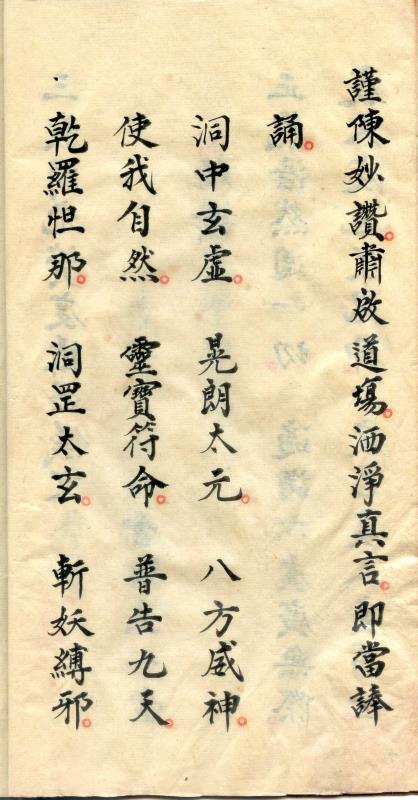 謹陳妙讚。肅啟道場。洒淨真言。即當諱
誦。
洞中玄虛。 晃朗太元。 八方威神。
使我自然。 靈寶符命。 普告九天。
乾羅怛那。 洞罡太玄。 斬妖縛邪。